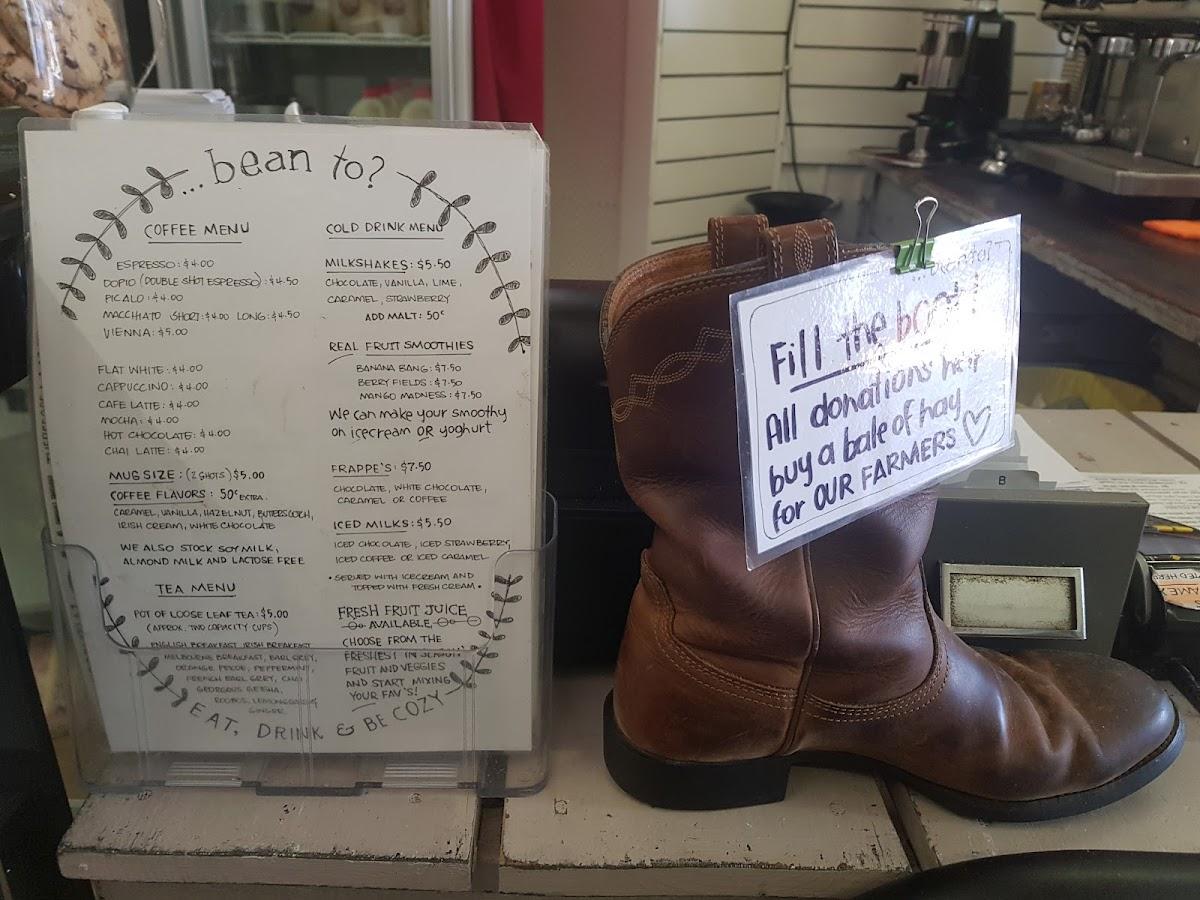 ...bean to?
COFFEE MENU
ESPRESSO: $4.00
DOPIO (DOUBLE SHOT ESPRESSO): $4.50
PICALO: $4.00
MACCHIATO SHORT: $4.00 LONG: $4.50
VIENNA: $5.00
FLAT WHITE: $4.00
CAPPUCCINO: $4.00
CAFE LATTE: $4.00
MOCHA: $4.00
HOT CHOCOLATE: $4.00
CHAI LATTE: $4.00
MUG SIZE: (2 SHOTS) $5.00
COFFEE FLAVORS: 50c EXTRA.
CARAMEL, VANILLA, HAZELNUT, BUTTERSCOTCH,
IRISH CREAM, WHITE CHOCOLATE
WE ALSO STOCK SOY MILK,
ALMOND MILK AND LACTOSE FREE
TEA MENU
POT OF LOOSE LEAF TEA: $5.00
(APPROX. TWO CAPACITY CUPS)
ENGLISH BREAKFAST, IRISH BREAKFAST
MELBOURNE BREAKFAST, EARL GREY,
ORANGE PEKOE, PEPPERMINT,
FRENCH EARL GREY, CHAI
GEORGEOUS GEISHA,
ROOBOS, LEMONGRASS
GINGER
COLD DRINK MENU
MILKSHAKES: $5.50
CHOCOLATE, VANILLA, LIME,
CARAMEL, STRAWBERRY
ADD MALT: 50c
REAL FRUIT SMOOTHIES
BANANA BANG: $7.50
BERRY FIELDS: $7.50
MANGO MADNESS: $7.50
We can make your smoothy
on icecream OR yoghurt
FRAPPE'S: $7.50
CHOCOLATE, WHITE CHOCOLATE,
CARAMEL OR COFFEE
ICED MILKS: $5.50
ICED CHOCOLATE, ICED STRAWBERRY,
ICED COFFEE OR ICED CARAMEL
• SERVED WITH ICECREAM AND
TOPPED WITH FRESH CREAM •
FRESH FRUIT JUICE
AVAILABLE
CHOOSE FROM THE
FRESHEST IN SEASON
FRUIT AND VEGGIES
AND START MIXING
YOUR FAV'S!
EAT, DRINK & BE COZY
Fill the boot!
All donations help
buy a bale of hay
for OUR FARMERS
B